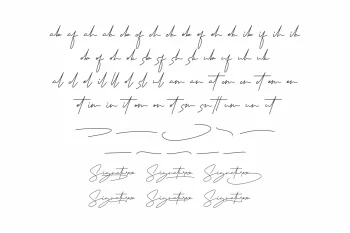 ab af ah ak cb cf ch ck eb ef eh ek ib if ih ik
ob of oh ok sb sf sh sk ub uf uh uk
al cl el il ll ol sl ul am an at cm cn ct em en
et im in it om on ot sm sn tt um un ut
Signature Signature Signature
Signature Signature Signature